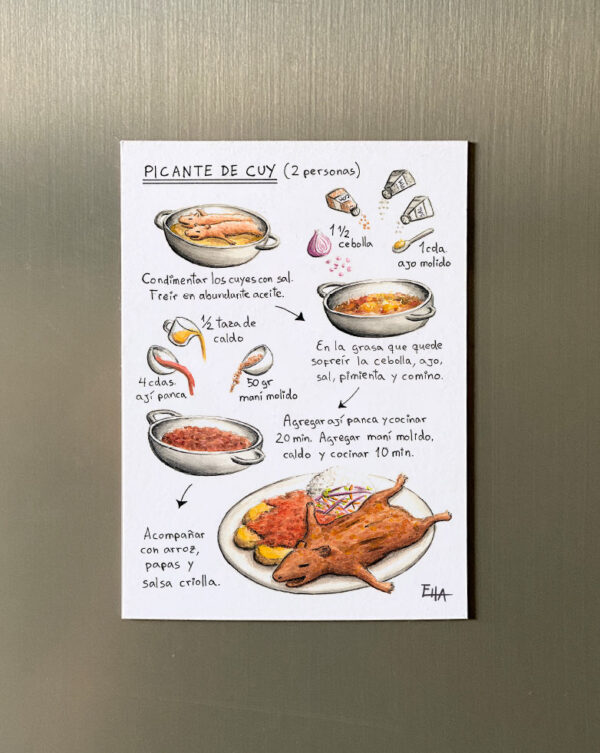 PICANTE DE CUY (2 personas)
1 1/2
cebolla
1 cda.
ajo molido
Condimentar los cuyes con sal.
Freír en abundante aceite.
En la grasa que quede
sofreír la cebolla, ajo,
sal, pimienta y comino.
1/2 taza de
caldo
4 cdas.
ají panca
50 gr
maní molido
Agregar ají panca y cocinar
20 min. Agregar maní molido,
caldo y cocinar 10 min.
Acompañar
con arroz,
papas y
salsa criolla.
EHA